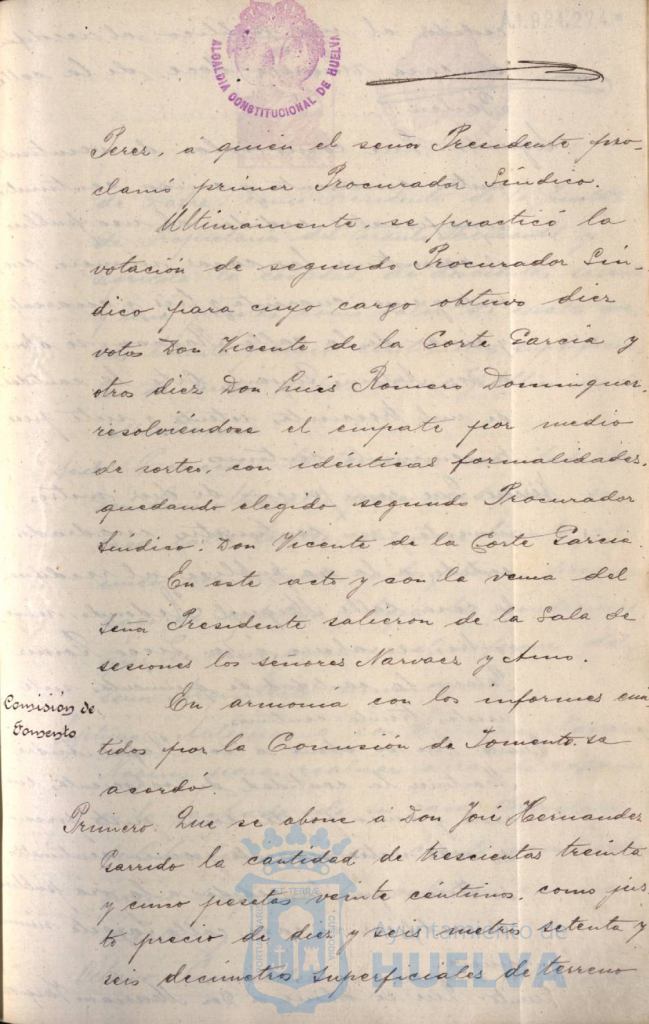 A1.824.224
ALCALDIA CONSTITUCIONAL DE HUELVA
Perez, á quien el señor Presidente pro-
clamó primer Procurador Síndico.
Ultimamente, se practicó la
votación de segundo Procurador Sín-
dico para cuyo cargo obtuvo diez
votos Don Vicente de la Corte Garcia y
otros diez Don Luis Romero Dominguez,
resolviéndose el empate por medio
de sorteo, con idénticas formalidades,
quedando elegido segundo Procurador
Síndico, Don Vicente de la Corte Garcia.
En este acto y con la venia del
señor Presidente salieron de la Sala de
sesiones los señores Narvaez y Amo.
Comisión de
Fomento
En armonia con los informes emi-
tidos por la Comisión de Fomento se
acordó.
Primero. Que se abone á Don José Hernandez
Garrido la cantidad de trescientas treinta
y cinco pesetas veinte céntimos, como jus-
to precio de diez y seis metros setenta y
seis decimetros superficiales de terreno
Ayuntamiento de
HUELVA